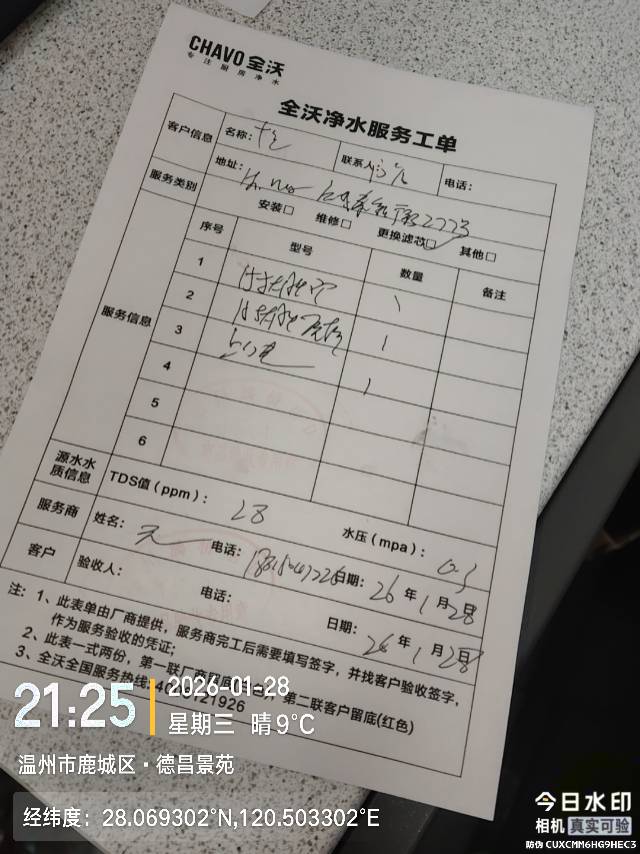 CHAVO 全沃
专注厨房净水
全沃净水服务工单
客户信息 名称： 联系人： 电话：
地址： 2773
服务类别 安装□ 维修□ 更换滤芯□ 其他□
服务信息 序号 型号 数量 备注
1 1
2 1
3
4 1
5
6
源水水质信息 TDS值（ppm）： 28 水压（mpa）： 0.3
服务商 姓名： 电话： 日期： 26 年 1 月 28 日
客户 验收人： 电话： 日期： 26 年 1 月 28 日
注：1、此表单由厂商提供，服务商完工后需要填写签字，并找客户验收签字，
作为服务验收的凭证；
2、此表一式两份，第一联厂商 第二联客户留底(红色)
3、全沃全国服务热线： 121926
21:25 2026-01-28
星期三 晴 9°C
温州市鹿城区·德昌景苑
经纬度：28.069302°N,120.503302°E
今日水印
相机 真实可验
防伪 CUXCMM6HG9HEC3